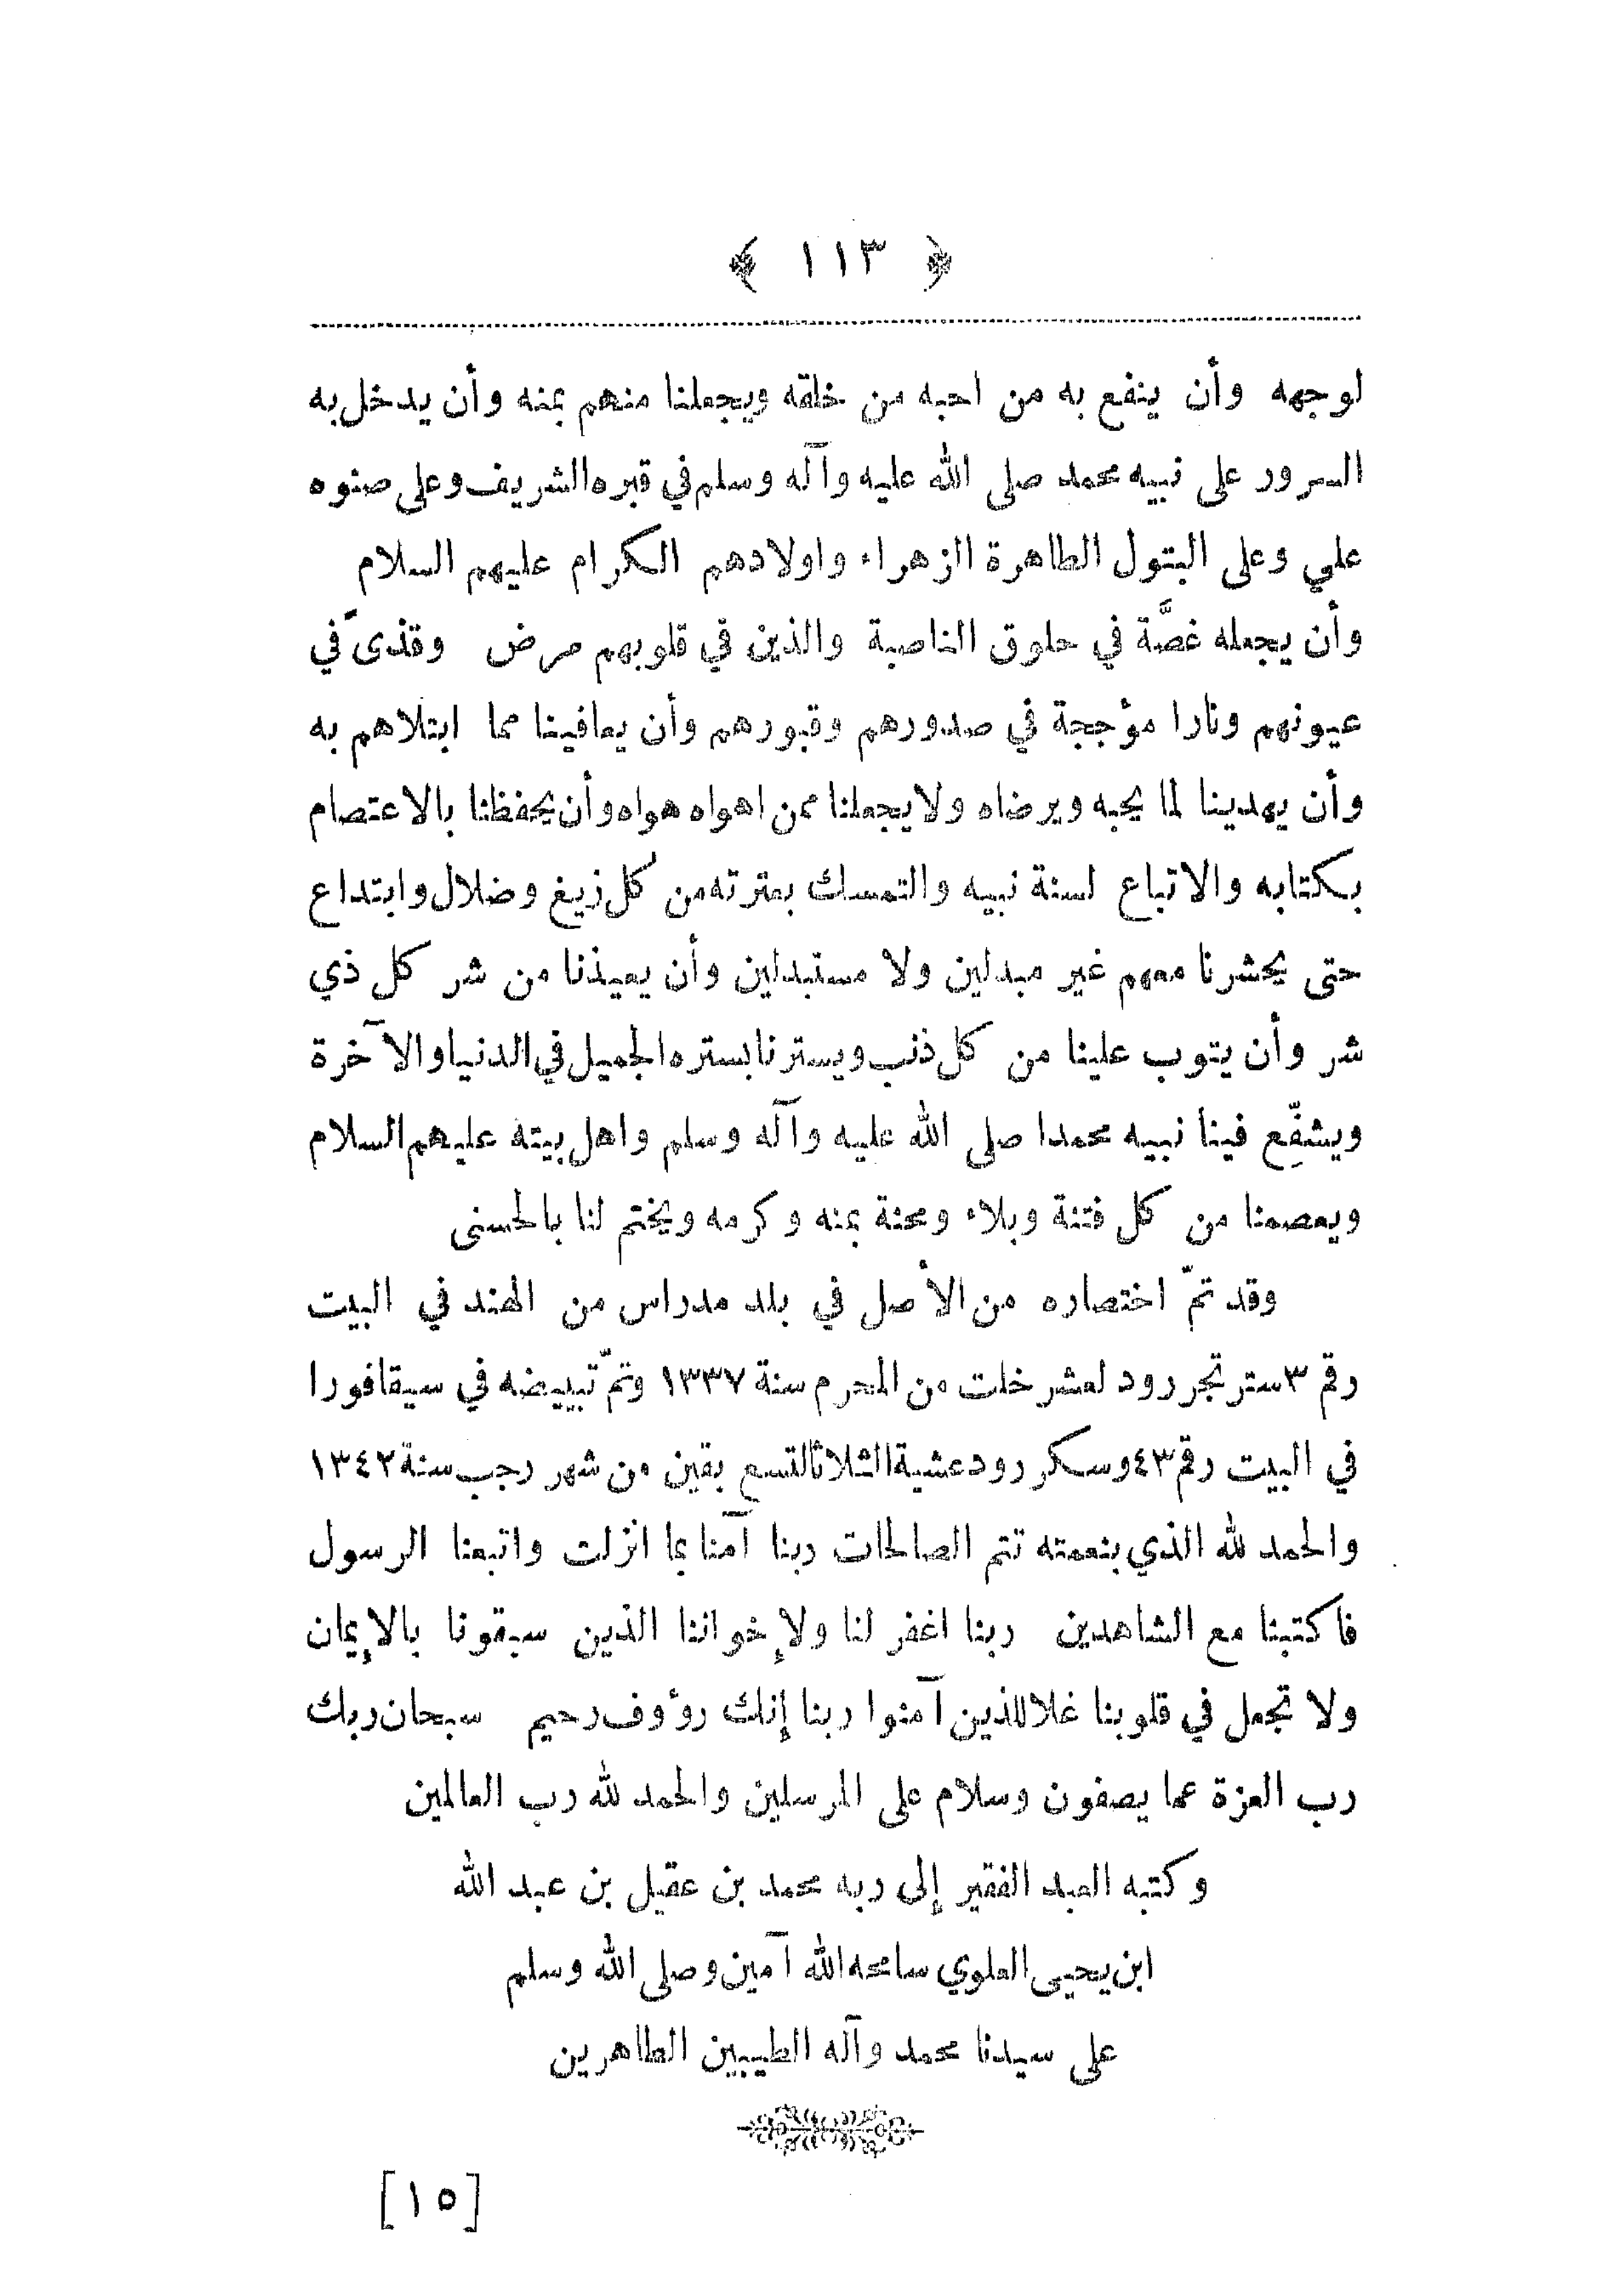 ﴿ ١١٣ ﴾
لوجهه وأن ينفع به من احبه من خلقه ويجعلنا منهم بمنه وأن يدخل به
السرور على نبيه محمد صلى الله عليه وآله وسلم في قبره الشريف وعلى صنوه
علي وعلى البتول الطاهرة الزهراء واولادهم الكرام عليهم السلام
وأن يجعله غصَّة في حلوق الناصبة والذين في قلوبهم مرض وقذىً في
عيونهم ونارا مؤججة في صدورهم وقبورهم وأن يعافينا مما ابتلاهم به
وأن يهدينا لما يحبه ويرضاه ولا يجعلنا ممن اهواه هواه وأن يحفظنا بالاعتصام
بكتابه والاتباع لسنة نبيه والتمسك بعترته من كل زيغ وضلال وابتداع
حتى يحشرنا معهم غير مبدلين ولا مستبدلين وأن يعيذنا من شر كل ذي
شر وأن يتوب علينا من كل ذنب ويسترنا بستره الجميل في الدنيا والآخرة
ويشفِّع فينا نبيه محمدا صلى الله عليه وآله وسلم واهل بيته عليهم السلام
ويعصمنا من كل فتنة وبلاء ومحنة بمنه وكرمه ويختم لنا بالحسنى
وقد تمّ اختصاره من الأصل في بلد مدراس من الهند في البيت
رقم ٣ سترتجر رود لعشر خلت من المحرم سنة ١٣٣٧ وتمّ تبييضه في سيقافورا
في البيت رقم ٤٣ وسكر رود عشية الثلاثا لتسع بقين من شهر رجب سنة ١٣٤٢
والحمد لله الذي بنعمته تتم الصالحات ربنا آمنا بما انزلت واتبعنا الرسول
فاكتبنا مع الشاهدين ربنا اغفر لنا ولإخواننا الذين سبقونا بالإيمان
ولا تجعل في قلوبنا غلا للذين آمنوا ربنا إنك رؤوف رحيم سبحان ربك
رب العزة عما يصفون وسلام على المرسلين والحمد لله رب العالمين
وكتبه العبد الفقير إلى ربه محمد بن عقيل بن عبد الله
ابن يحيى العلوي سامحه الله آمين وصلى الله وسلم
على سيدنا محمد وآله الطيبين الطاهرين
[١٥]